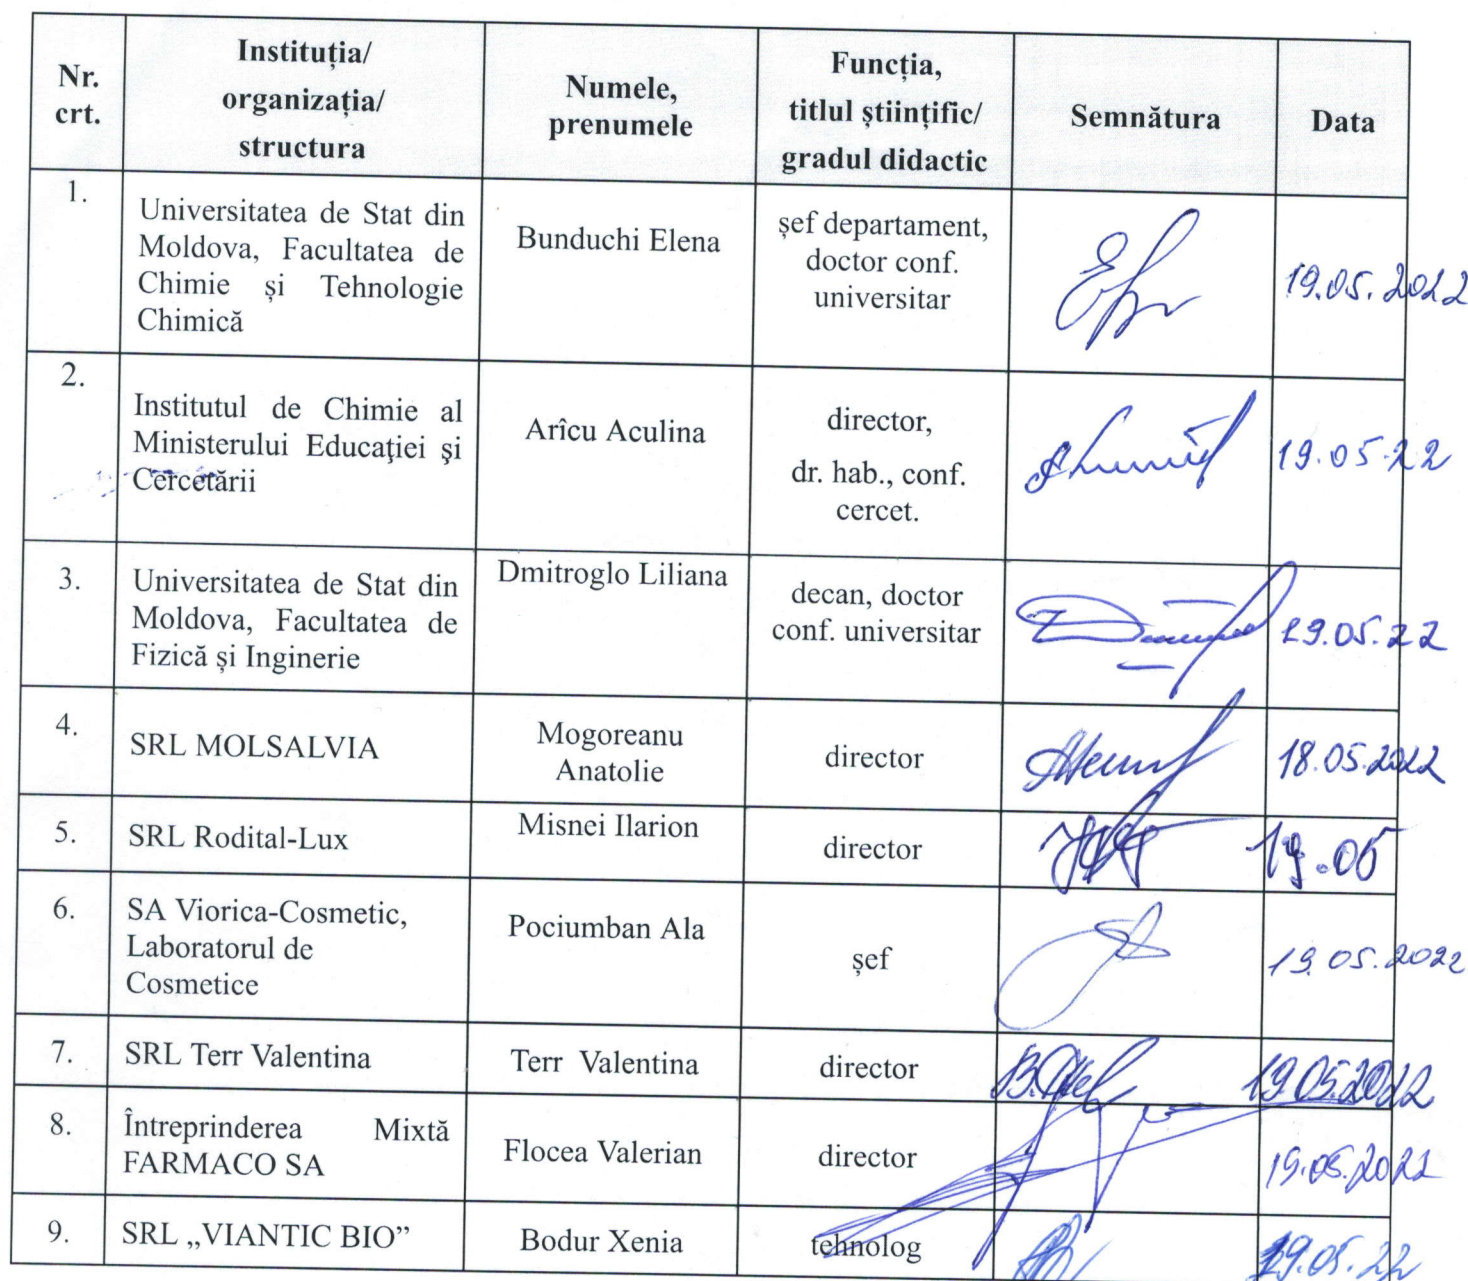 Nr. crt.
Instituția/
organizația/
structura
Numele,
prenumele
Funcția,
titlul științific/
gradul didactic
Semnătura
Data
1.
Universitatea de Stat din
Moldova, Facultatea de
Chimie și Tehnologie
Chimică
Bunduchi Elena
șef departament,
doctor conf.
universitar
19.05.2022
2.
Institutul de Chimie al
Ministerului Educaţiei şi
Cercetării
Arîcu Aculina
director,
dr. hab., conf.
cercet.
19.05.22
3.
Universitatea de Stat din
Moldova, Facultatea de
Fizică și Inginerie
Dmitroglo Liliana
decan, doctor
conf. universitar
19.05.22
4.
SRL MOLSALVIA
Mogoreanu
Anatolie
director
18.05.2022
5.
SRL Rodital-Lux
Misnei Ilarion
director
19.05
6.
SA Viorica-Cosmetic,
Laboratorul de
Cosmetice
Pociumban Ala
șef
19.05.2022
7.
SRL Terr Valentina
Terr Valentina
director
19.05.2022
8.
Întreprinderea Mixtă
FARMACO SA
Flocea Valerian
director
9.
SRL „VIANTIC BIO”
Bodur Xenia
tehnolog
19.05.22